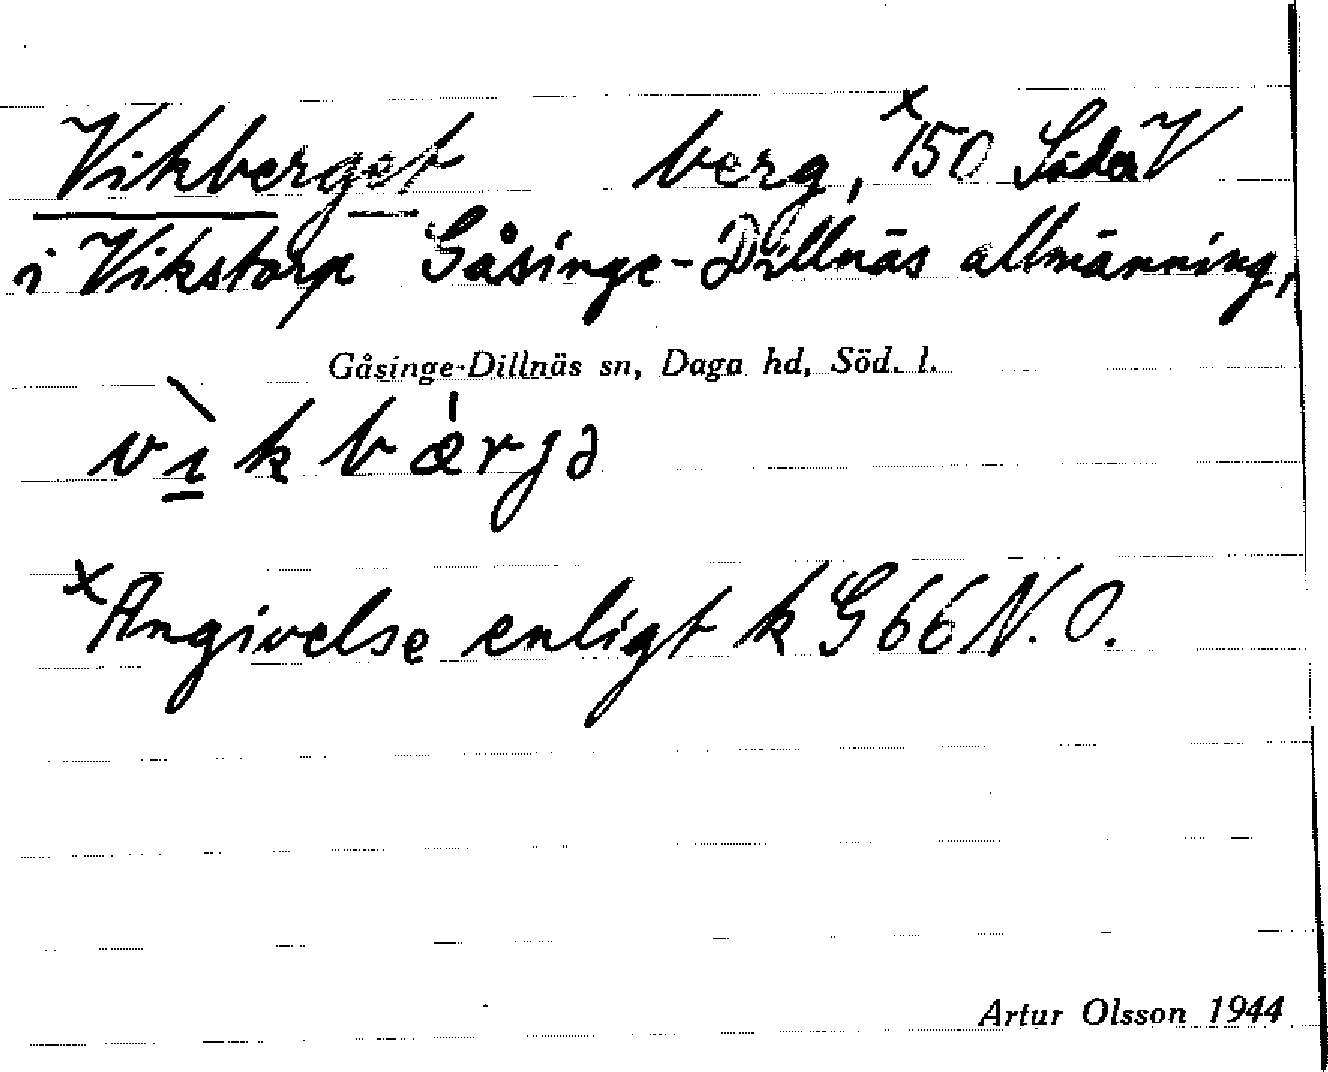 Vikberget berg, x 150 Söder V
i Vikstorp Gåsinge-Dillnäs allmänning,
Gåsinge-Dillnäs sn, Daga hd, Söd. l.
vìkbǽrjə
x Angivelse enligt k G 66 N. O.
Artur Olsson 1944